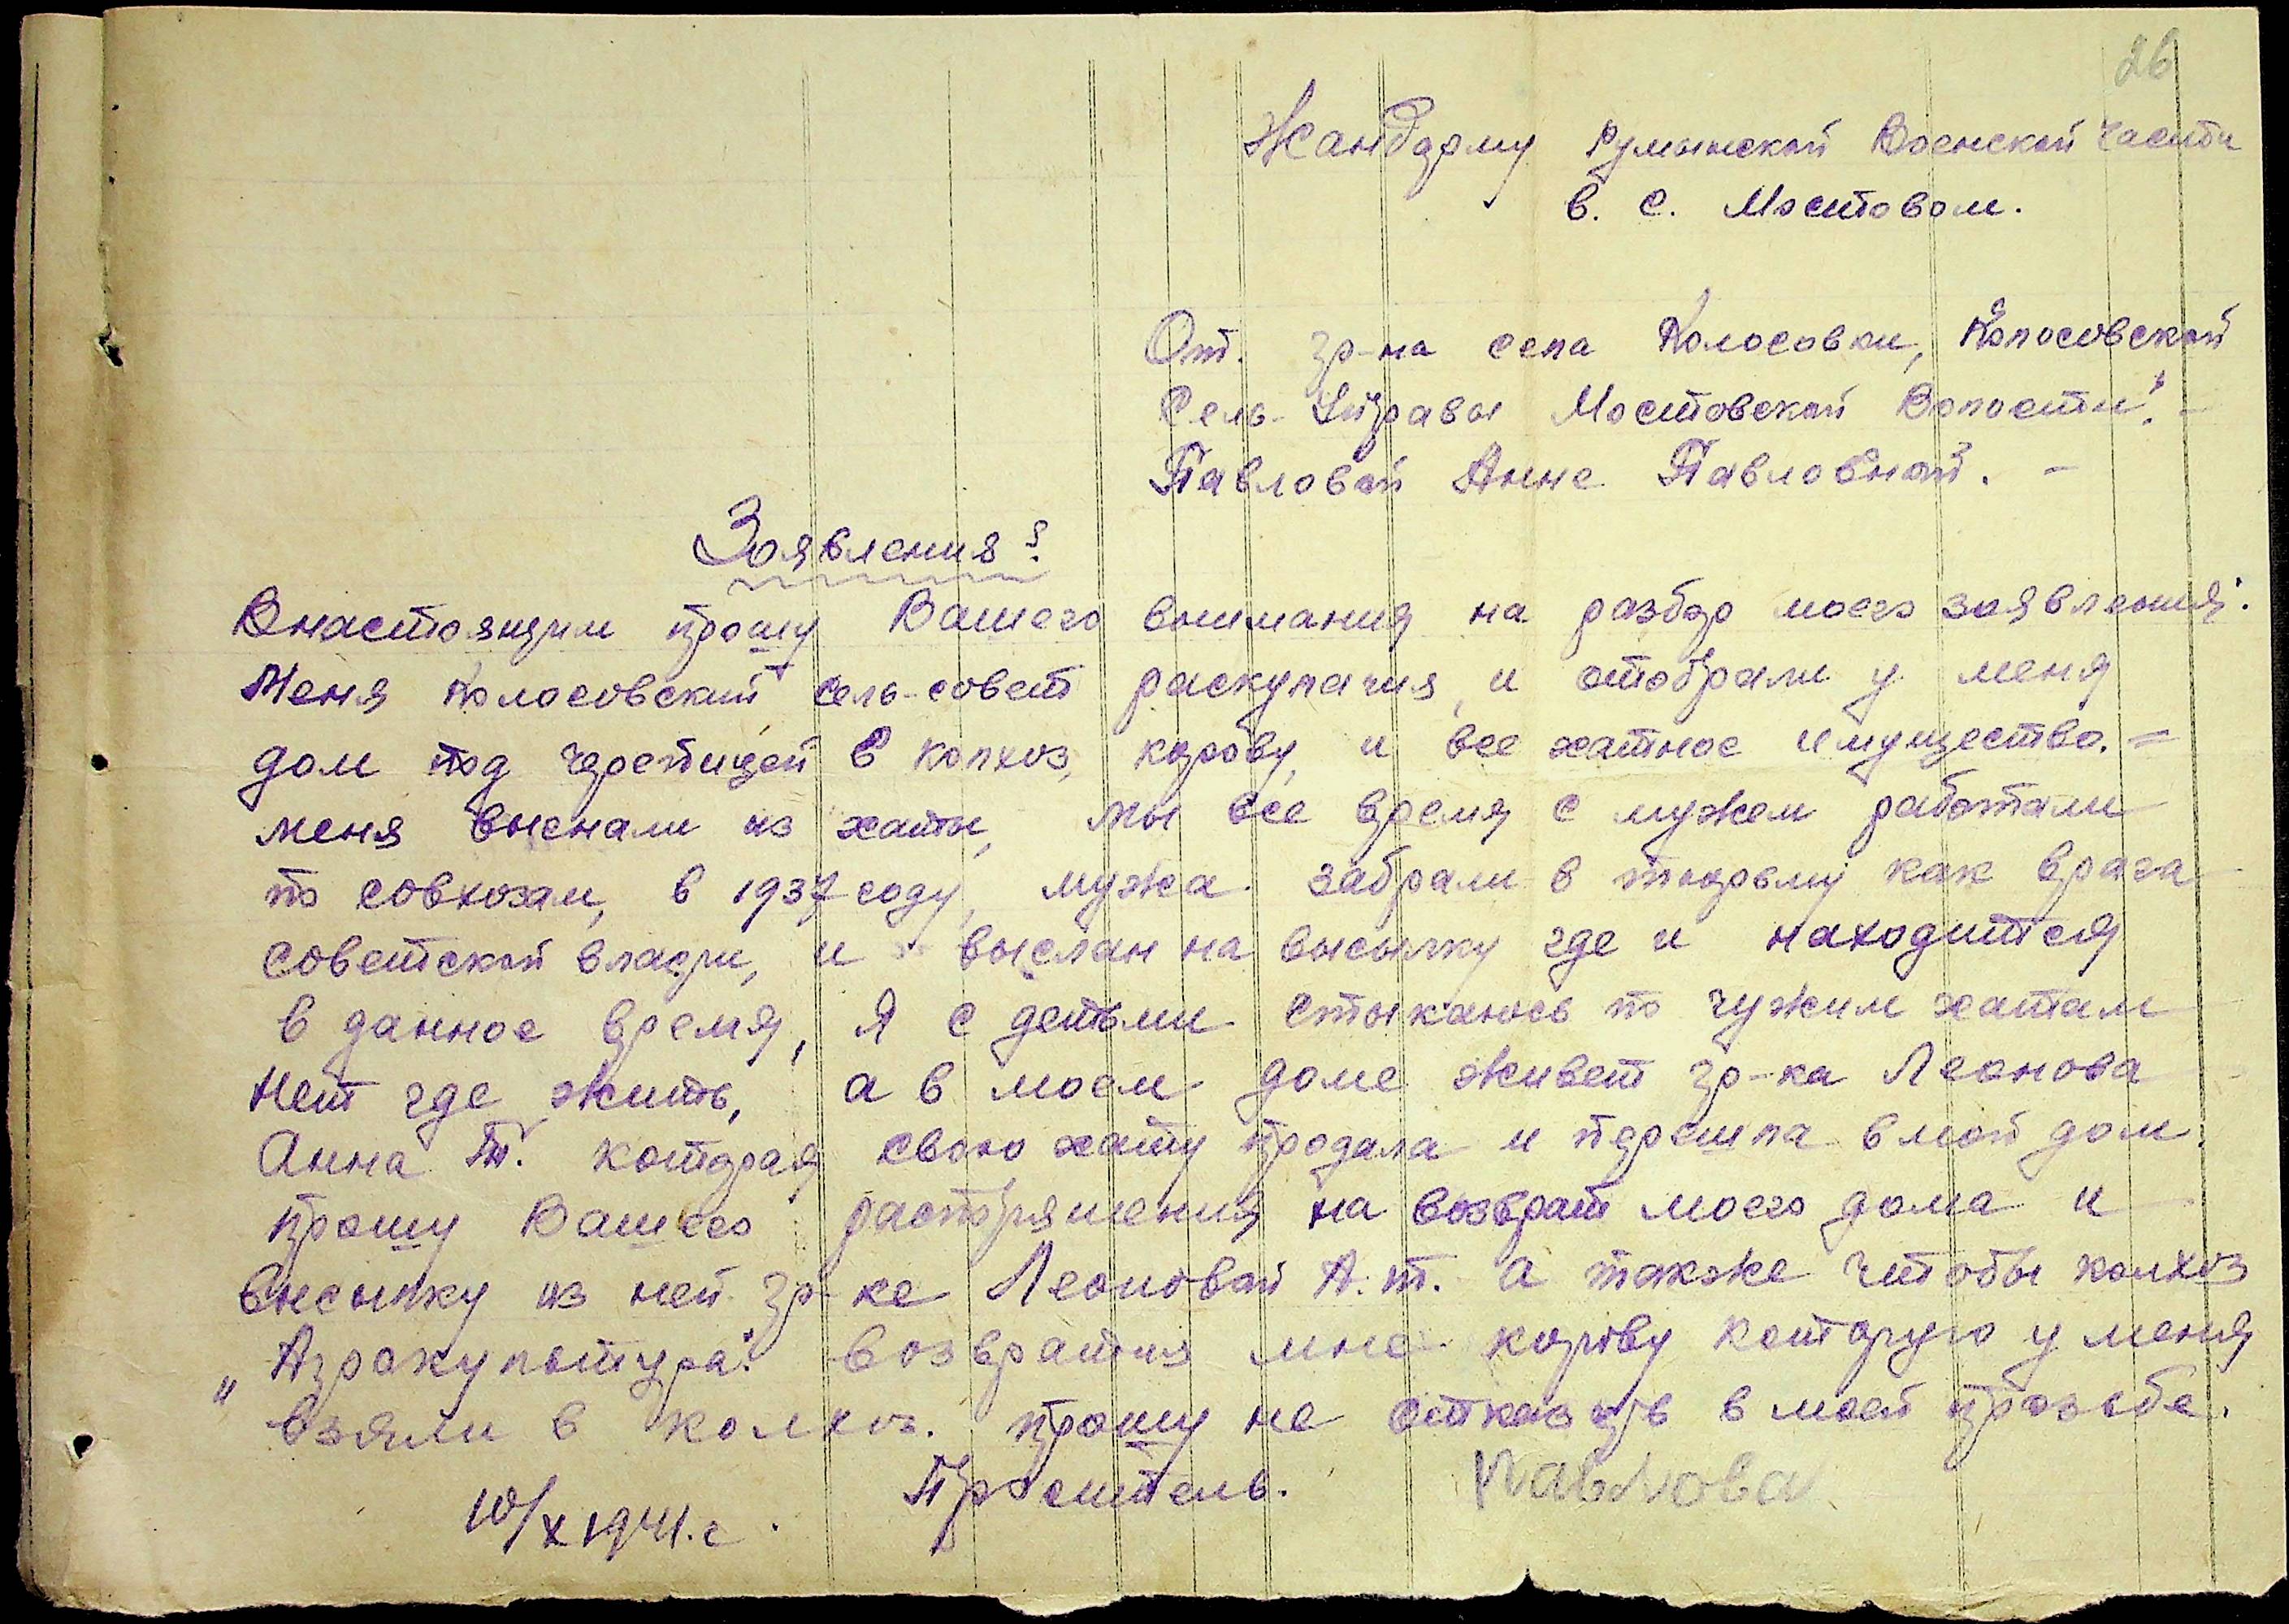 26
Жандарму Румынской Военской Части
в. с. Мостовом.
От. гр-на села Колосовки, Колосовской
Сель-Управы Мостовской Волости. -
Павловай Анне Павловной. -
Заявления:
Внастоящим прошу Вашего внимания на разбор моего заявления:
Меня Колосовский сель-совет раскулачия, и отобрали у меня
дом под черепицей в колхоз, корову, и все хатное имущество. =
меня выгнали из хаты, мы все время с мужем работали
по совхозам, в 1937 году, мужа забрали в тюрьму как врага
советской власти, и выслан на высылку где и находится
в данное время, Я с детьми стыкаюсь по чужим хатам
Нет где жить, а в моем доме живет гр-ка Леонова
Анна Т. которая свою хату продала и перешла в мой дом.
прошу Вашего распоряшения на возврат моего дома и
высылку из ней гр-ке Леоновай А.т. а также чтобы колхоз
„Агрокультура" возвратия мне корову которую у меня
взяли в колхоз. прошу не отказать в моей прозьбе.
Проситель. Павлова
10/X 1941.г.